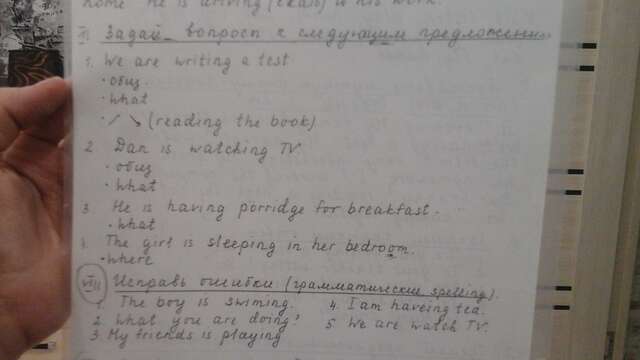 home He is driving (ехать) to his work.
VII Задай вопросы к следующим предложениям
1. We are writing a test
• общ.
• what
• / ↘ (reading the book)
2. Dan is watching TV.
• общ
• what
3. He is having porridge for breakfast.
• what
4. The girl is sleeping in her bedroom.
• where
VIII Исправь ошибки (грамматические spelling).
1. The boy is swiming. 4. I am haveing tea.
2. What you are doing? 5. We are watch TV.
3. My friends is playing